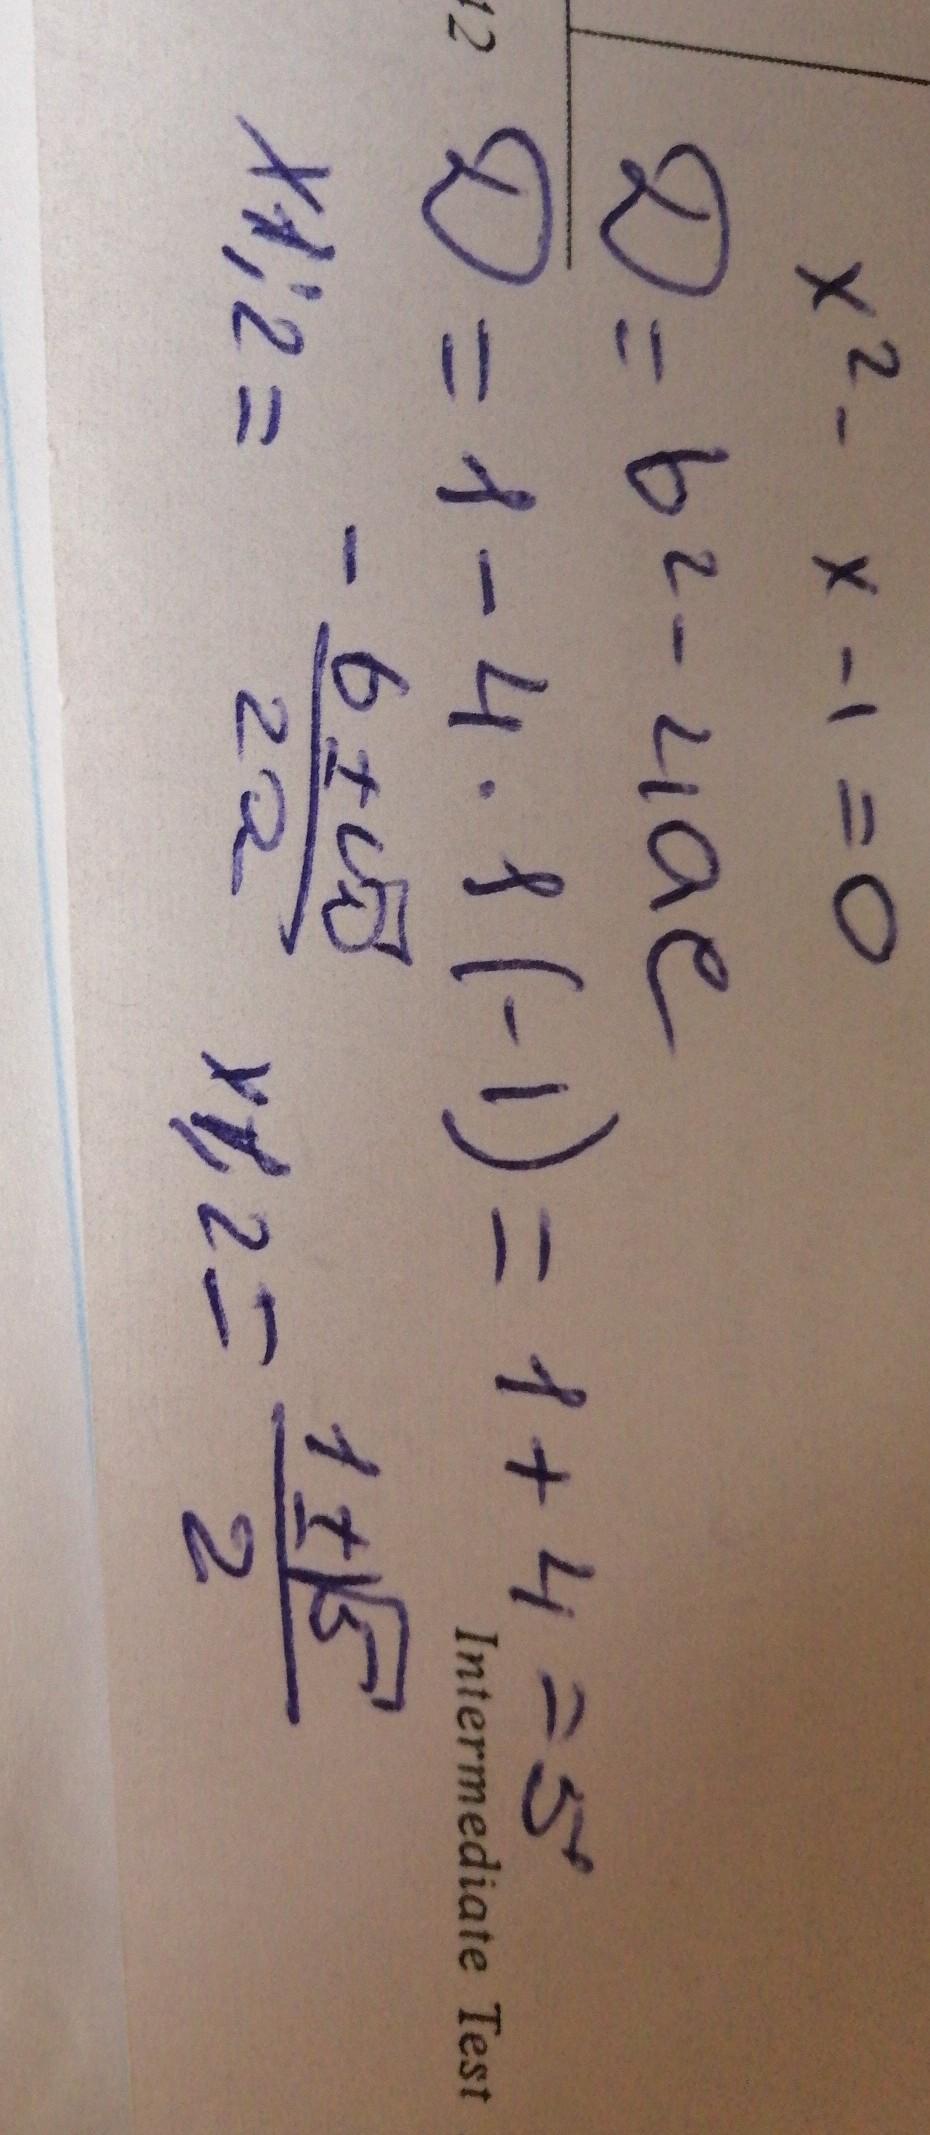 x² - x - 1 = 0
D = b² - 4ac
D = 1 - 4 · 1 (-1) = 1 + 4 = 5
x1,2 = -b ± √D / 2a x1,2 = 1 ± √5 / 2
12 Intermediate Test